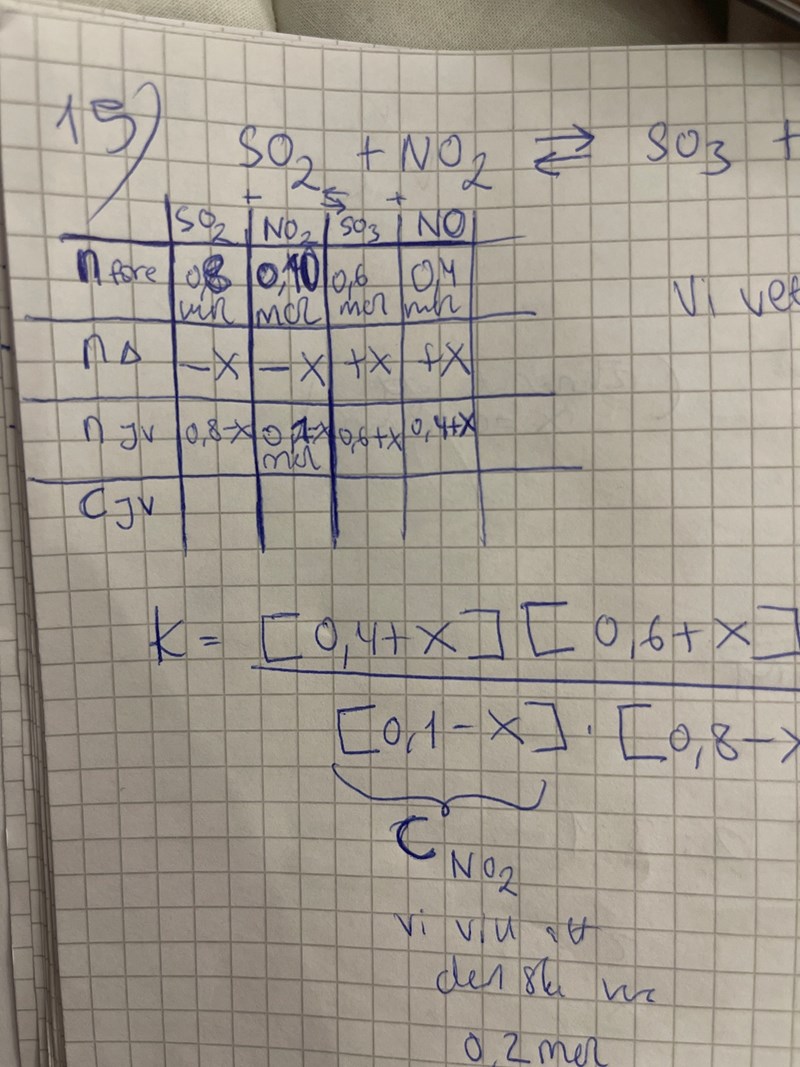 15) SO2 + NO2 ⇌ SO3 +
+ ⇆ +
SO2 NO2 SO3 NO
n före 0,8 mol 0,10 mol 0,6 mol 0,4 mol
Vi vet
n Δ -x -x +x +x
n jv 0,8-x 0,1-x mol 0,6+x 0,4+x
C jv
K = [0,4+x] [0,6+x]
[0,1-x] · [0,8-x
C NO2
vi vill att
den ska
0,2 mol